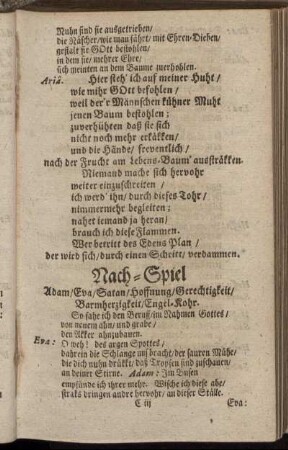 Nuhn sind sie ausgetrieben/
die Näscher/wie man fährt/ mit Ehren-Dieben/
gestalt sie GOtt bestohlen/
in dem sie/ mehrer Ehre/
sich meinten an dem Baume zuerhohlen.
Ariä. Hier steh' ich auf meiner Huht/
wie mihr GOtt befohlen/
weil der'r Männschen kühner Muht
jenen Baum bestohlen;
zuverhühten daß sie sich
nicht noch mehr erkäkken/
und die Hände/ freventlich/
nach der Frucht am Lebens-Baum' ausstrákken.
Niemand mache sich hervohr
weiter einzuschreiten/
ich werd' ihn/ durch dieses Tohr/
nimmermehr begleiten;
nahet iemand ja heran/
brauch ich diese Flammen.
Wer betritt des Edens Plan/
der wird sich/ durch einen Schritt/ verdammen.
Nach-Spiel
Adam/ Eva/ Satan/ Hoffnung/ Gerechtigkeit/
Barmherzigkeit/ Engel-Kohr.
So fahe ich den Beruf/ im Nahmen Gottes/
von neuem ahn/ und grabe/
den Akker ahnzubauen.
Eva: O weh! des argen Spottes/
dahrein die Schlange uns bracht/ der sauren Mühe/
die dich nuhn drükkt/ daß Tropfen sind zuschauen/
an deiner Stirne. Adam: Im Busen
empfünde ich ihrer mehr. Wische ich diese abe/
straks dringen andre hervohr/ an dieser Ställe.
C iij Eva: